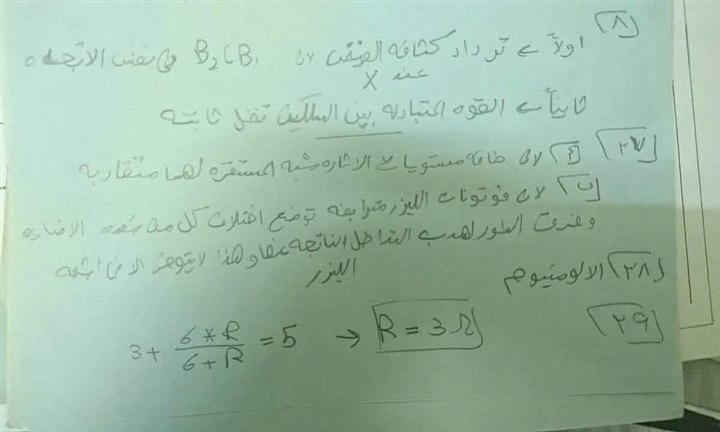 ٨ اولاً → تزداد كثافة الفيض لان B₂ , B₁ فى نفس الاتجاه
عند X
ثانياً → القوه المتبادله بين السلكين تظل ثابته
٢٧ أ لان طاقه مستويات الاثاره شبه المستقره لهما متقاربه
ب لان فوتونات الليزر مترابطه توضح اختلاف كل من شده الاضاءه
وفرق الطور لهدب التداخل الناتجه عنها وهذا لا يتوفر الا فى اشعه
الليزر
٢٨ الالومنيوم
٢٩
3+ 6*R/6+R = 5 → R = 3Ω